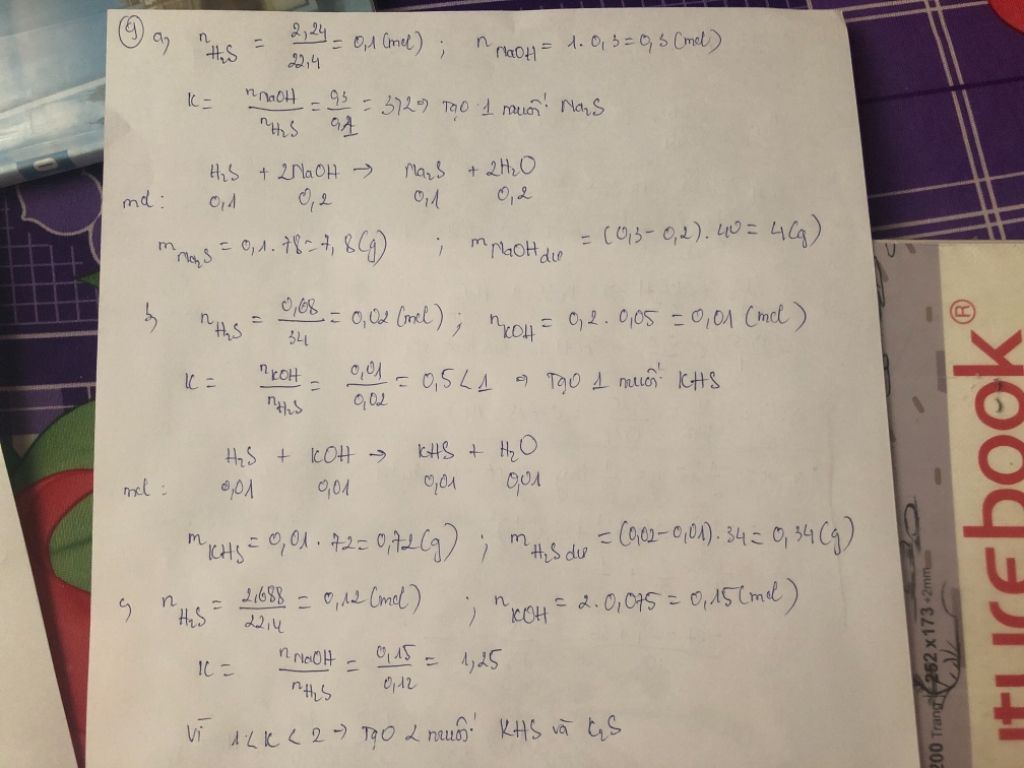 9 a, n H₂S = 2,24/22,4 = 0,1 (mol) ; n NaOH = 1. 0,3 = 0,3 (mol)
K = nNaOH/nH₂S = 0,3/0,1 = 3 > 2 → Tạo 1 muối Na₂S
H₂S + 2NaOH → Na₂S + 2H₂O
mol : 0,1 0,2 0,1 0,2
m Na₂S = 0,1 . 78 = 7,8 (g) ; m NaOH dư = (0,3 - 0,2) . 40 = 4 (g)
b, n H₂S = 0,68/34 = 0,02 (mol) ; n KOH = 0,2 . 0,05 = 0,01 (mol)
K = nKOH/nH₂S = 0,01/0,02 = 0,5 < 1 → Tạo 1 muối KHS
H₂S + KOH → KHS + H₂O
mol : 0,01 0,01 0,01 0,01
m KHS = 0,01 . 72 = 0,72 (g) ; m H₂S dư = (0,02 - 0,01) . 34 = 0,34 (g)
c, n H₂S = 2,688/22,4 = 0,12 (mol) ; n KOH = 2. 0,075 = 0,15 (mol)
K = nNaOH/nH₂S = 0,15/0,12 = 1,25
Vì 1 < K < 2 → Tạo 2 muối KHS và K₂S
book®
200 Trang
252 x 173 ±2mm